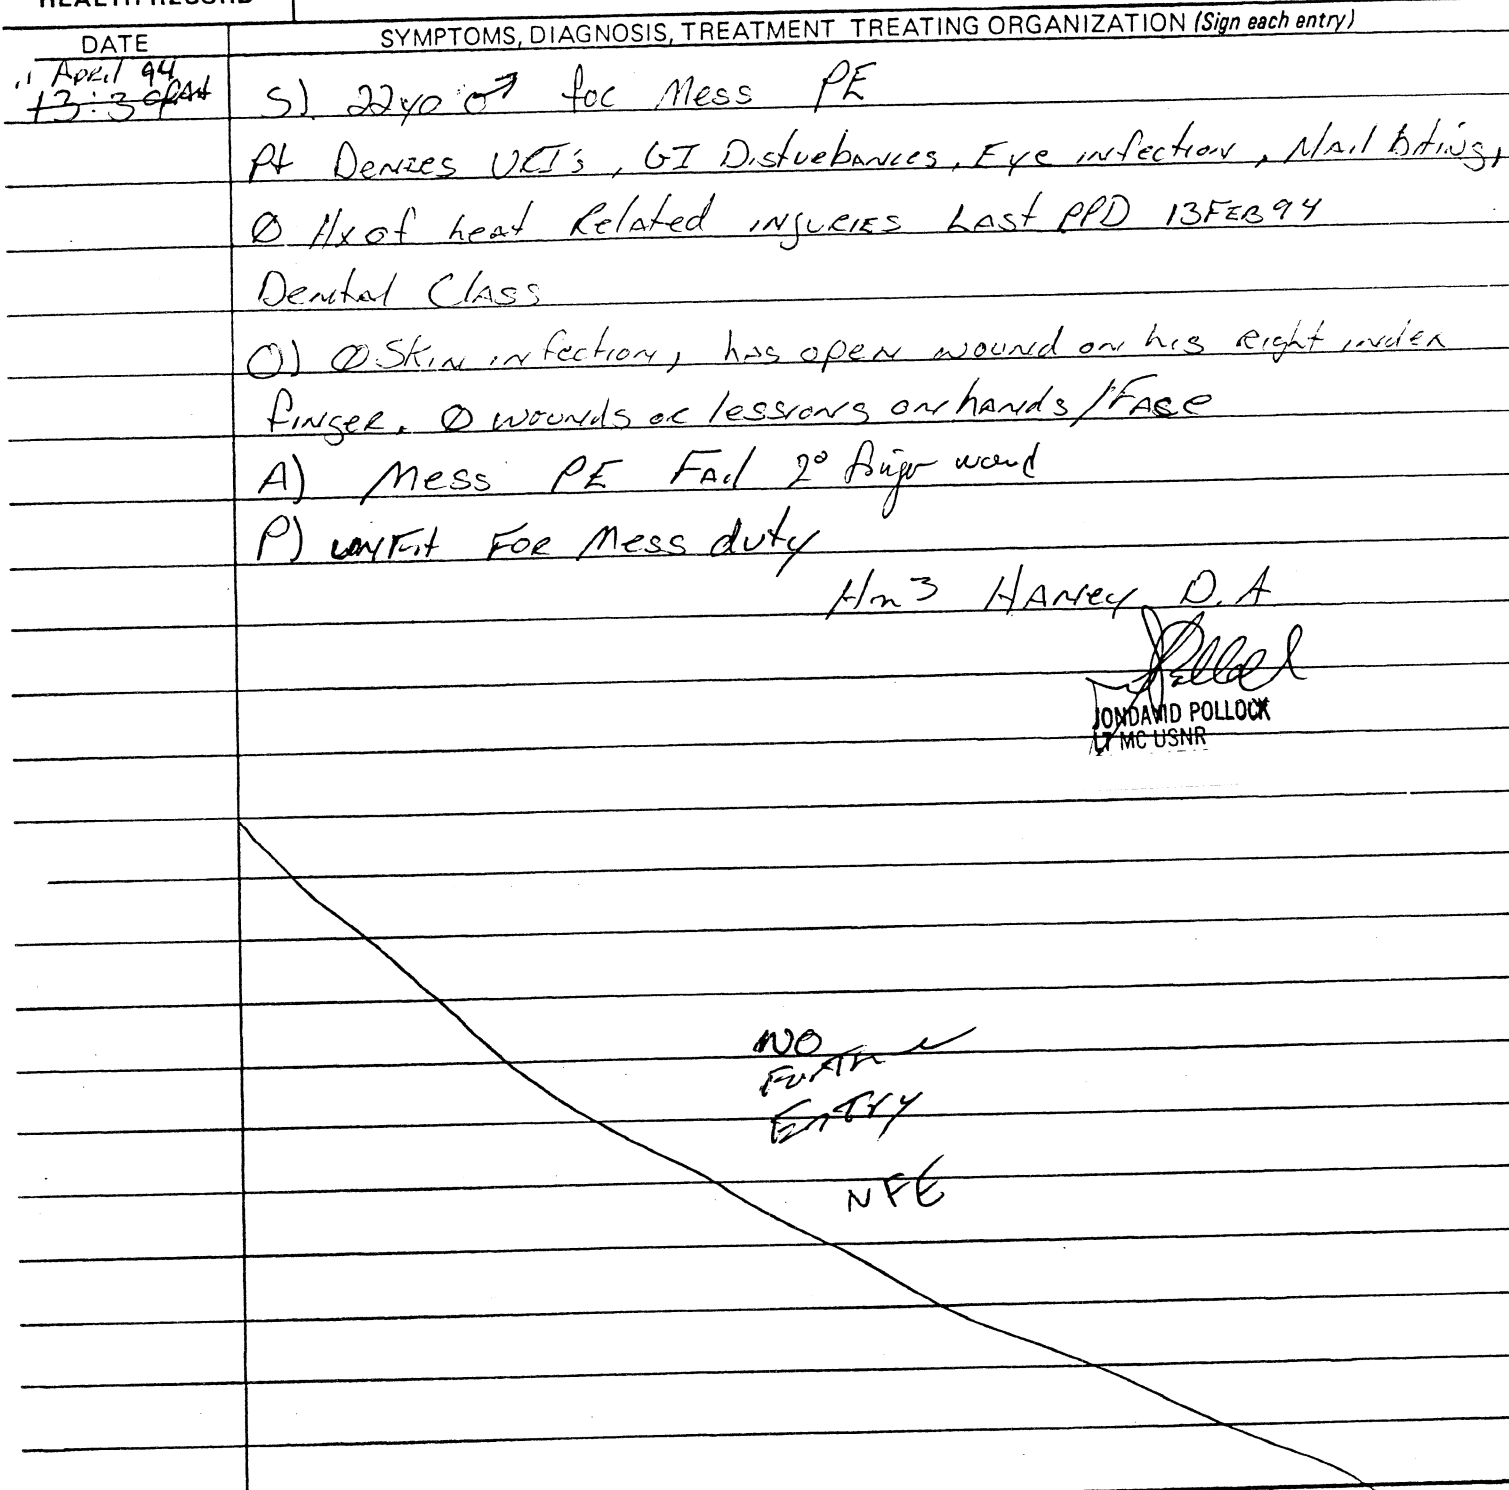 HEALTH RECORD
DATE
SYMPTOMS, DIAGNOSIS, TREATMENT TREATING ORGANIZATION (Sign each entry)
11 April 94
S) 22yo ♂ for Mess PE
Pt Denies URI's, GI Disturbances, Eye infection, Nail Biting,
Ø Hx of heat Related injuries Last PPD 13FEB94
Dental Class
O) Ø Skin infection, has open wound on his right index
finger. Ø wounds or lessions on hands/Face
A) Mess PE Fail 2° finger wound
P) unFit For Mess duty
Hm3 Haney D.A
JONDAVID POLLOCK
LT MC USNR
NO
Further
Entry
NFE